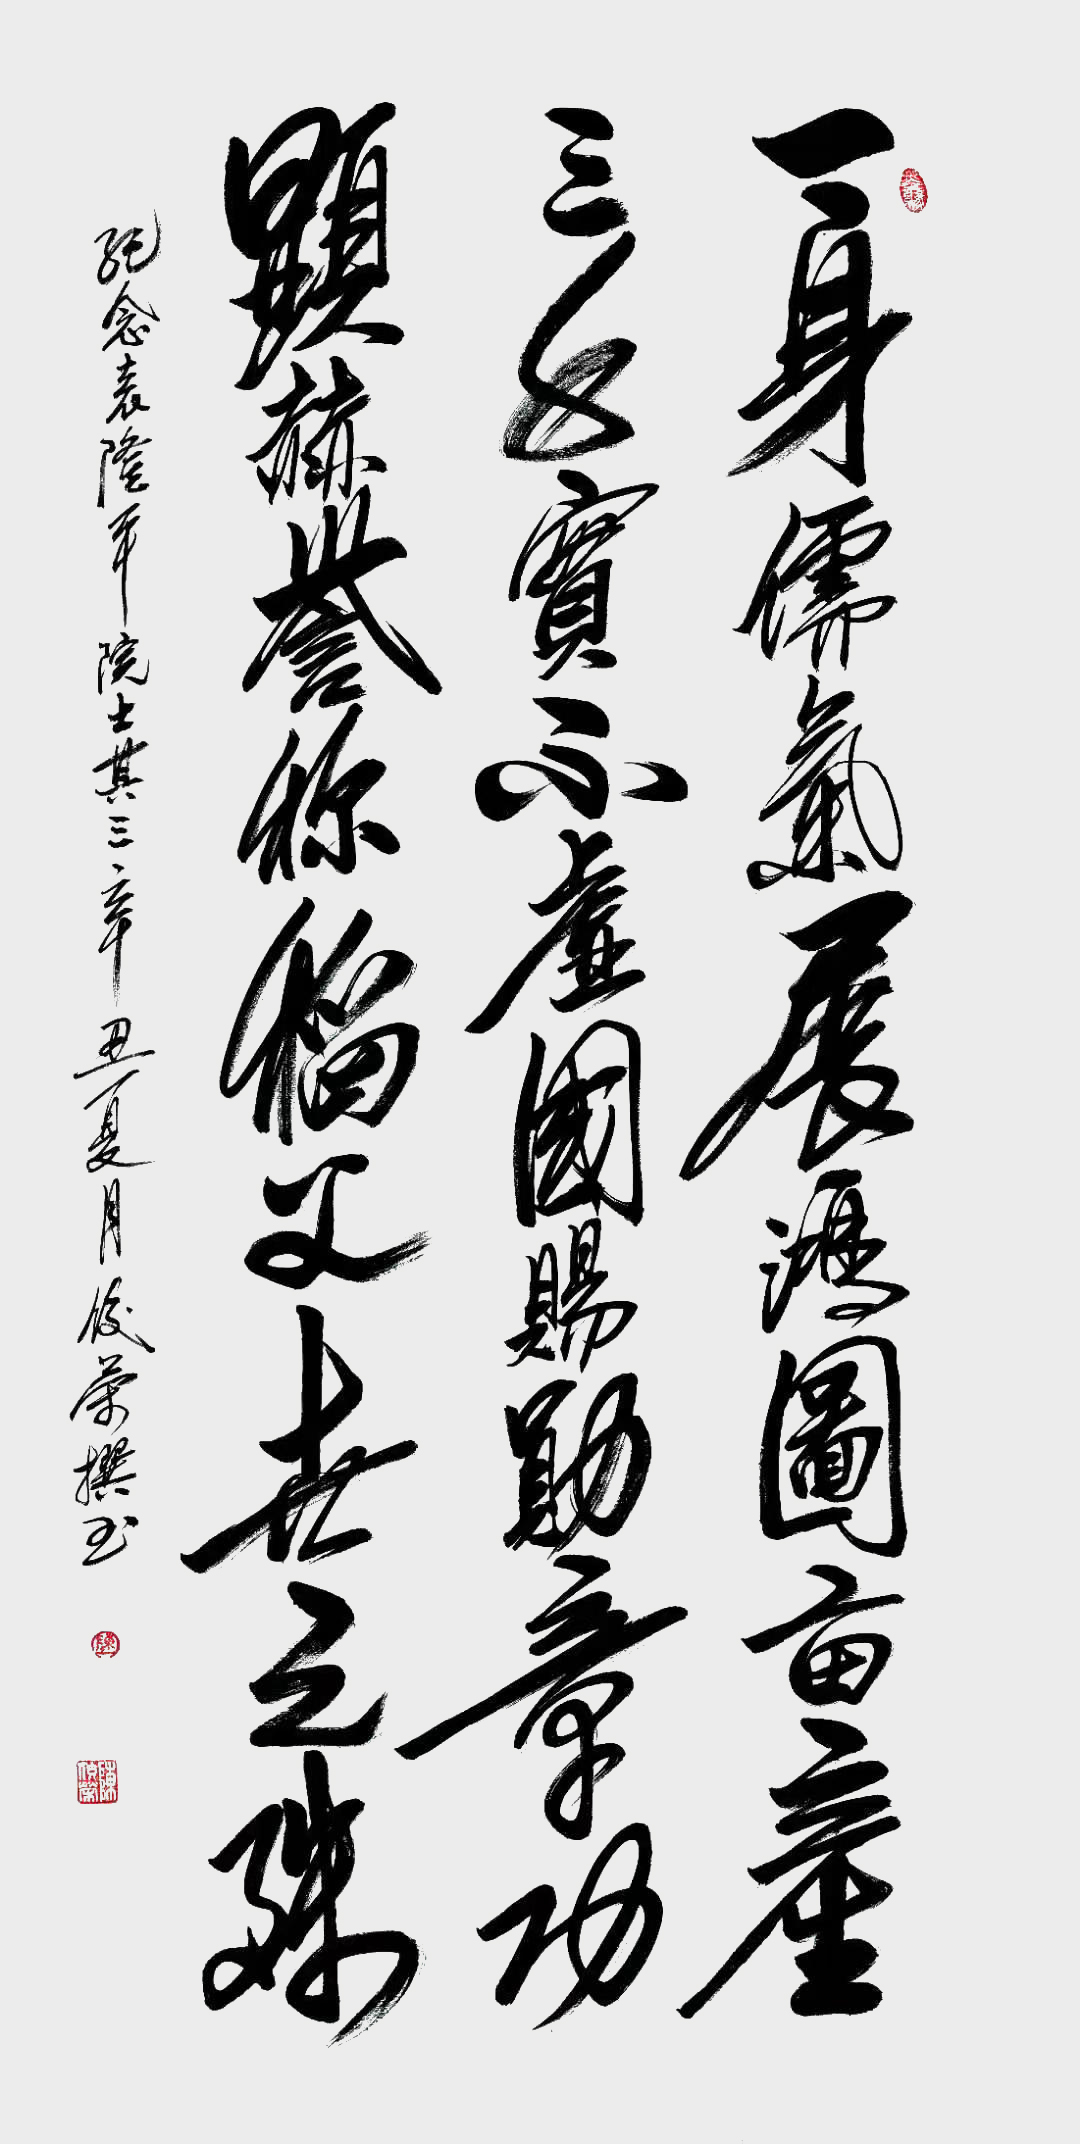 一身儒氣展鴻圖亩產
三千實不虛國賜勛章功
顯赫譽称稻父世之殊
紀念袁隆平院士其三辛丑夏月俊榮撰书